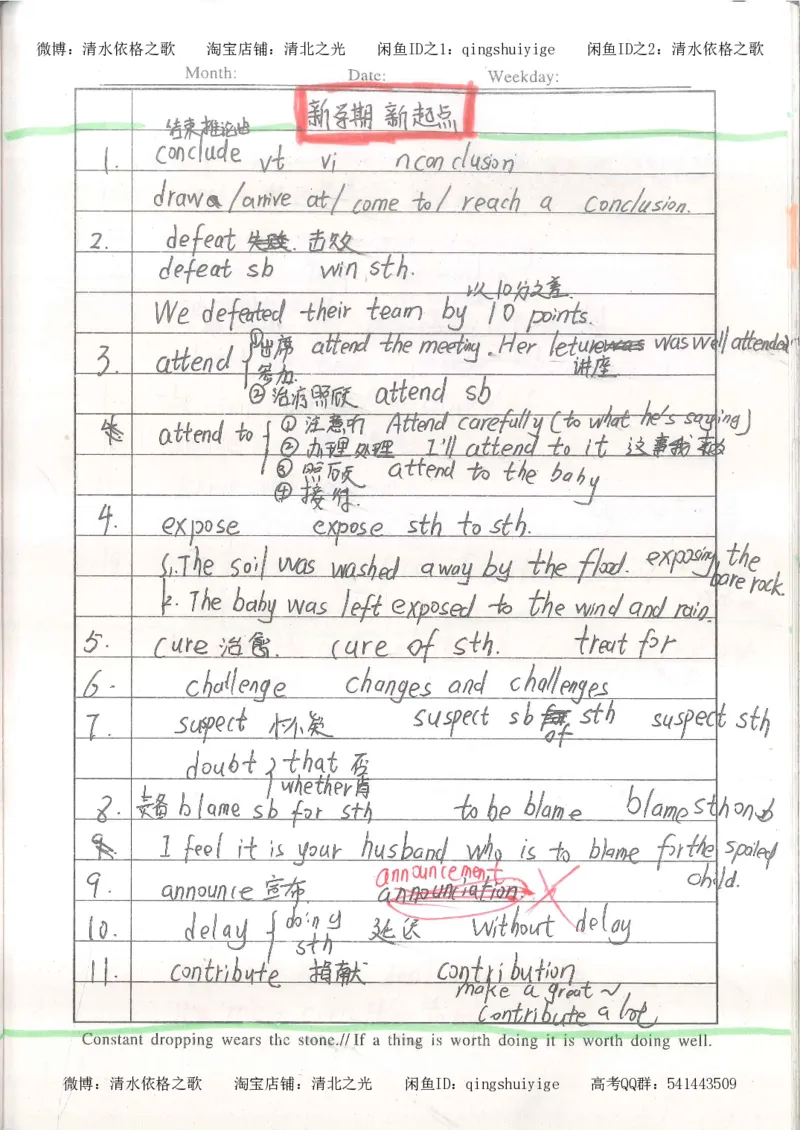 微博：清水依格之歌 淘宝店铺：清北之光 闲鱼ID之1：qingshuiyige 闲鱼ID之2：清水依格之歌
Month: Date: Weekday:
新学期 新起点
结束 推论出
1. conclude vt vi n conclusion
draw a / arrive at / come to / reach a conclusion.
2. defeat 失败. 击败
defeat sb win sth.
以10分之差.
We defeated their team by 10 points.
3. attend ①出席 attend the meeting. Her leture was was well attended
参加 讲座
②治病 照顾 attend sb
attend to ① 注意听 Attend carefully (to what he's saying)
② 办理 处理 I'll attend to it 这事我来办
③ 照顾 attend to the baby
④ 接待.
4. expose expose sth to sth.
1. The soil was washed away by the flood. exposing the
bare rock.
2. The baby was left exposed to the wind and rain.
5. cure 治愈. cure of sth. treat for
6. challenge changes and challenges
7. suspect 怀疑 suspect sb of sth suspect sth
doubt that 否
whether 肯
8. 责备 blame sb for sth to be blame blame sth on sb
I feel it is your husband who is to blame for the spoiled
child.
announcement
9. announce 宣布 announciation.
10. delay doing 延误 without delay
sth
11. contribute 捐献 contribution
make a great ~
contribute a lot
Constant dropping wears the stone.// If a thing is worth doing it is worth doing well.
微博：清水依格之歌 淘宝店铺：清北之光 闲鱼ID：qingshuiyige 高考QQ群：541443509